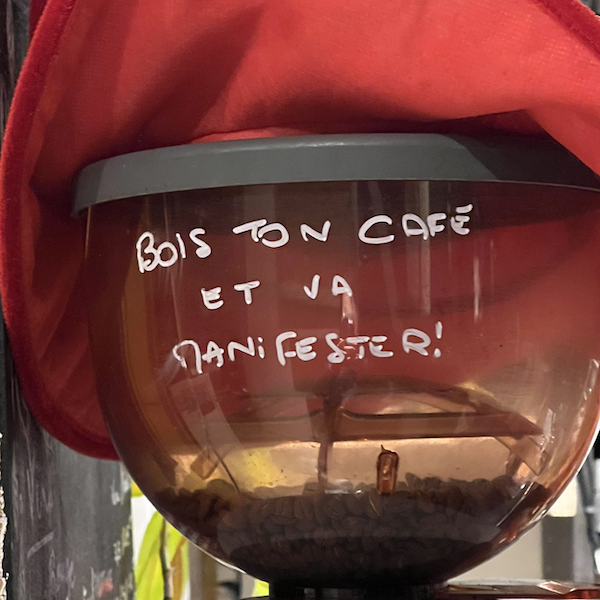 BOIS TON CAFÉ
ET VA
MANiFESTER!